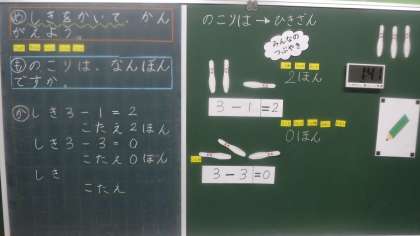 め しきをかいて、かん
がえよう。
も のこりは、なんぼん
ですか。
か しき3-1=2
こたえ2ほん
しき3-3=0
こたえ0ほん
しき
こたえ
のこりは→ひきざん
みんなの
つぶやき
2ほん
3-1=2
0ほん
3-3=0